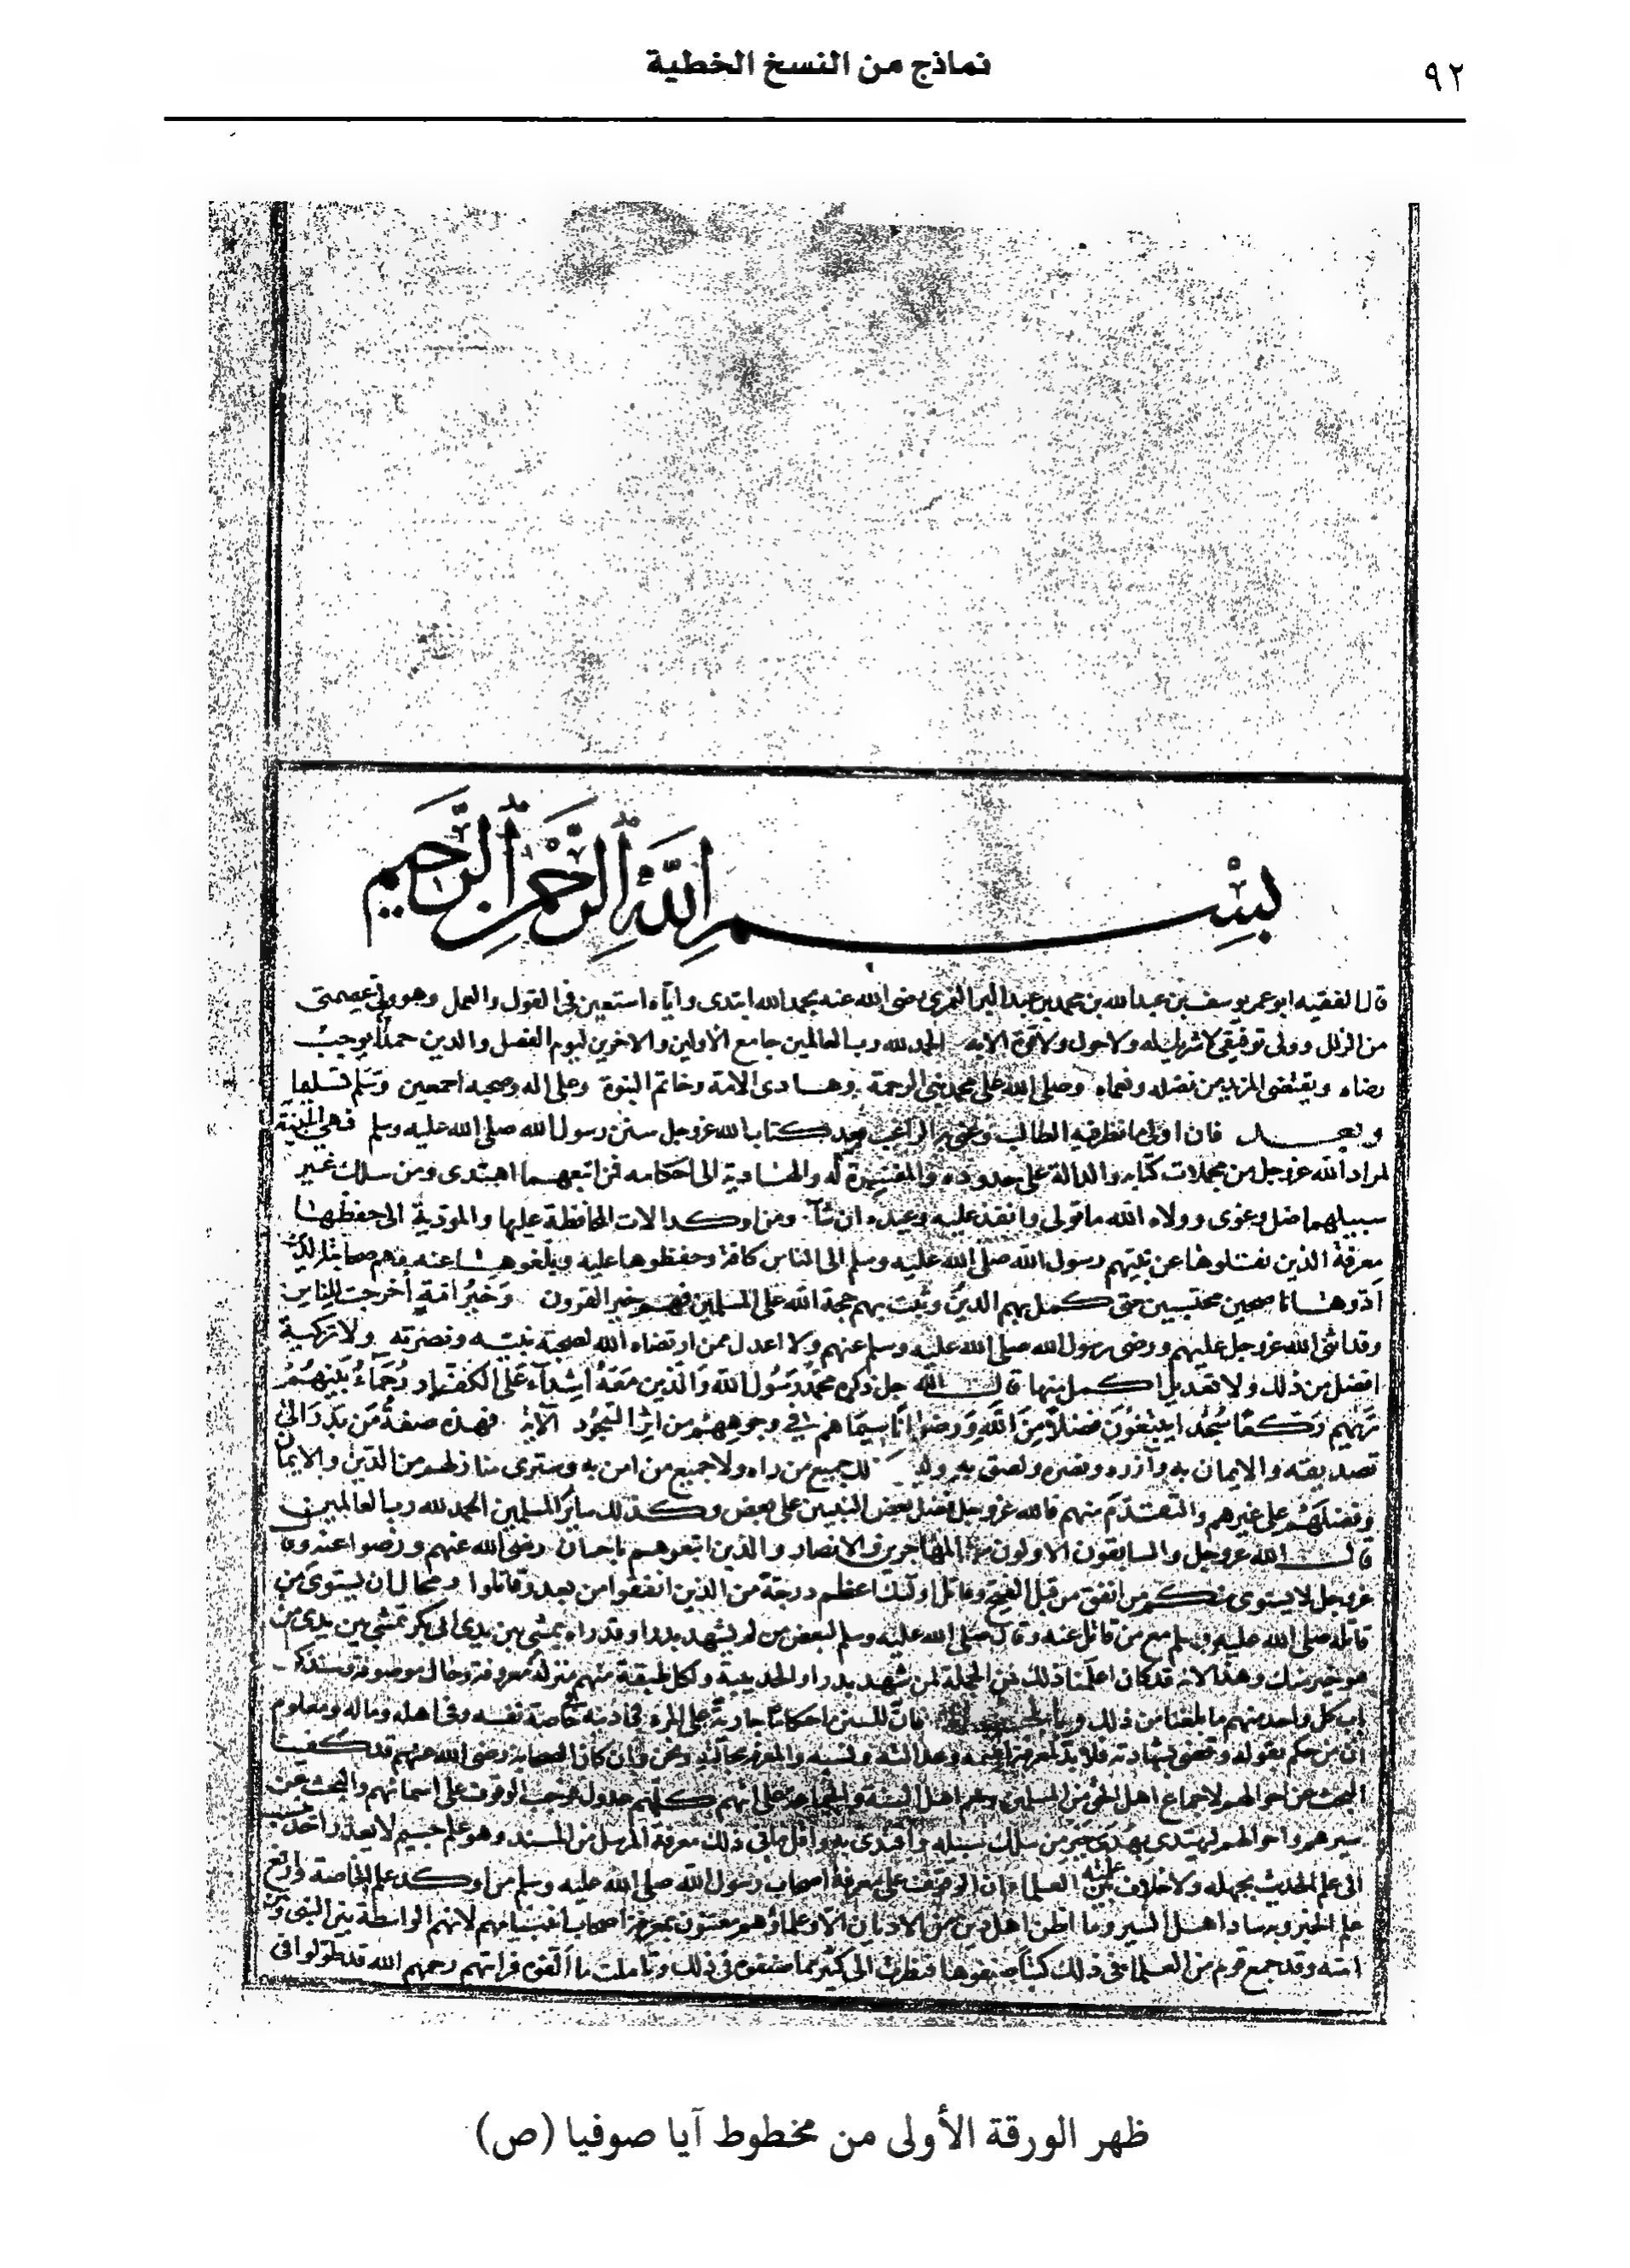 نماذج من النسخ الخطية
٩٢
بسم الله الرحمن الرحيم
قال الفقيه ابو عمر يوسف بن عبد الله بن محمد بن عبد البر النمري رضى الله عنه بحمد الله ابتدى واياه استعين فى القول والعمل وهو ولى عصمتى
من الزلل وولى توفيقى لا شريك له ولا حول ولا قوة الا به الحمد لله رب العالمين جامع الأولين والاخرين ليوم الفصل والدين حمدا يوجب
رضاه ويقتضى المزيد من فضله ونعماه وصلى الله على محمد نبى الرحمة وهادى الامة وخاتم النبوة وعلى اله وصحبه اجمعين وسلم تسليما
وبعد فان اولى ما نظر فيه الطالب وعنى به الراغب بعد كتاب الله عز وجل سنن رسول الله صلى الله عليه وسلم فهى المبينة
لمراد الله عز وجل من مجملات كتابه والدالة على حدوده والمفسرة له والهادية الى احكامه فمن اتبعهما اهتدى ومن سلك غير
سبيلهما ضل وغوى وولاه الله ما تولى وانفذ عليه وعيده ان شآ ومن اوكد الات المحافظة عليها والمودية الى حفظها
معرفة الذين نقلوها عن نبيهم رسول الله صلى الله عليه وسلم الى الناس كافة وحفظوها عليه وبلغوها عنه وهم صحابته الذين
ادوها ناصحين محتسبين حتى كمل بهم الدين وثبت بهم حجة الله على المسلمين فهم خير القرون وخير امة أخرجت للناس
وقد اثنى الله عز وجل عليهم ورضى رسول الله صلى الله عليه وسلم عنهم ولا اعدل ممن ارتضاه الله لصحبة نبيه ونصرته ولا تزكية
افضل من ذلك ولا تعديل اكمل منها قال الله جل ذكره محمد رسول الله والذين معه أشدآء على الكفار رحمآء بينهم
تريهم ركعا سجدا يبتغون فضلا من الله ورضوانا سيماهم في وجوههم من اثر السجود الآية فهذه صفة من بدر الى
تصديقه والايمان به وآزره ونصره ولصق به جميع من راه ولا جميع من امن به وسترى منازلهم من الدين والايمان
وفضلهم على غيرهم والتقدم منهم فالله عز وجل فضل بعض النبيين على بعض وكذلك ساير المسلمين الحمد لله رب العالمين
قال الله عز وجل والسابقون الاولون من المهاجرين والانصار والذين اتبعوهم باحسان رضى الله عنهم ورضوا عنه وقال
عز وجل لا يستوى منكم من انفق من قبل الفتح وقاتل اولئك اعظم درجة من الذين انفقوا من بعد وقاتلوا ومحال ان يستوى من
قاتله صلى الله عليه وسلم مع من قاتل عنه وقال صلى الله عليه وسلم لبعض من لم يشهد بدرا وقد راه يمشى بين يدى ابى بكر تمشى بين يدى من
هو خير منك وهذا لانه قد كان اعلمنا ذلك فى الجملة لمن شهد بدرا والحديبية ولكل طبقة منهم منزلة معروفة وحال موصوفة وسنذكر
كل واحد منهم ما بلغنا من ذلك فان السنن احكاما جارية على المرء فى دينه خاصة نفسه وفى اهله وماله ومعلوم
ان من حكم بقوله وقضى بشهادته فلا بد لمعرفة اسمه وعدالته ونسبه والمعرفة بحاله ونحن وان كان الصحابة رضى الله عنهم قد كفينا
البحث عن احوالهم لاجماع اهل الحق من المسلمين وهم اهل السنة والجماعة على انهم كلهم عدول فواجب الوقوف على اسمائهم والبحث عن
سيرهم واحوالهم ليهتدى بهديهم خير من سلك سبيله واقتدى به واقل ما فى ذلك معرفة المرسل من المسند وهو علم جسيم لا يعذر احد ينسب
الى علم الحديث بجهله ولا خلاف علمته بين العلماء ان الوقوف على معرفة اصحاب رسول الله صلى الله عليه وسلم من اوكد علم الخاصة وارفع
علم الخبر وبه ساد اهل السير وما اظن اهل دين من الاديان الا وعلماؤهم معتنون بمعرفة اصحاب انبيايهم لانهم الواسطة بين النبى وبين
امته وقد جمع قوم من العلماء فى ذلك كتبا صنفوها فنظرت الى كثير مما صنفوه فى ذلك وتاملت ما الفوه فرايتهم رحمهم الله قد طولوا فى
ظهر الورقة الأولى من مخطوط آيا صوفيا (ص)